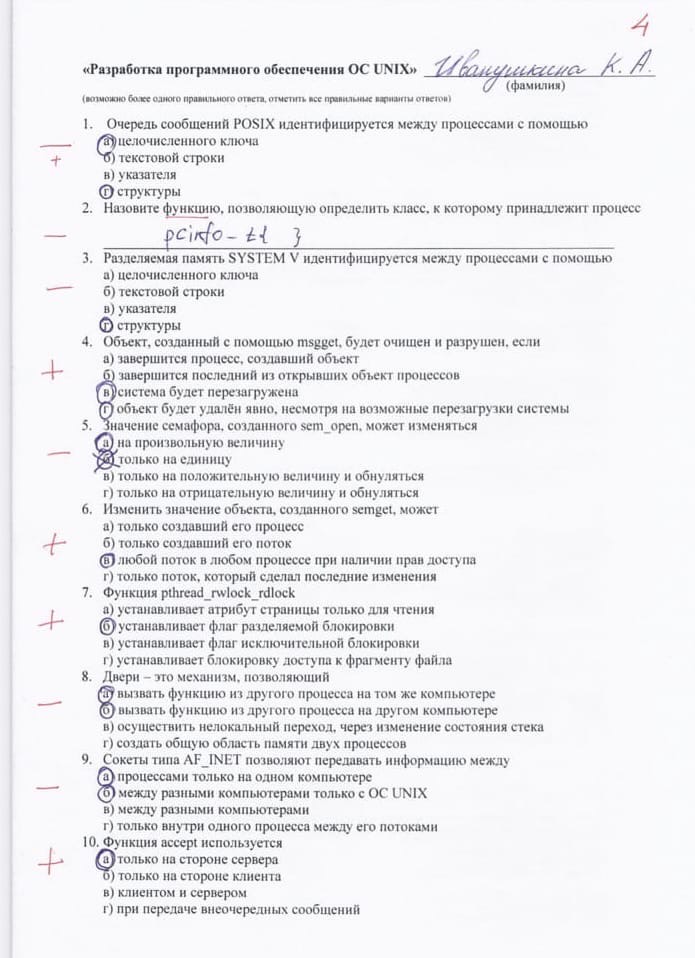 4
«Разработка программного обеспечения ОС UNIX» Иванушкина К. А.
(фамилия)
(возможно более одного правильного ответа, отметить все правильные варианты ответов)
1. Очередь сообщений POSIX идентифицируется между процессами с помощью
— а) целочисленного ключа
+ б) текстовой строки
в) указателя
г) структуры
2. Назовите функцию, позволяющую определить класс, к которому принадлежит процесс
— pcinfo_t{ }
3. Разделяемая память SYSTEM V идентифицируется между процессами с помощью
а) целочисленного ключа
— б) текстовой строки
в) указателя
г) структуры
4. Объект, созданный с помощью msgget, будет очищен и разрушен, если
а) завершится процесс, создавший объект
+ б) завершится последний из открывших объект процессов
в) система будет перезагружена
г) объект будет удалён явно, несмотря на возможные перезагрузки системы
5. Значение семафора, созданного sem_open, может изменяться
а) на произвольную величину
— б) только на единицу
в) только на положительную величину и обнуляться
г) только на отрицательную величину и обнуляться
6. Изменить значение объекта, созданного semget, может
а) только создавший его процесс
+ б) только создавший его поток
в) любой поток в любом процессе при наличии прав доступа
г) только поток, который сделал последние изменения
7. Функция pthread_rwlock_rdlock
а) устанавливает атрибут страницы только для чтения
+ б) устанавливает флаг разделяемой блокировки
в) устанавливает флаг исключительной блокировки
г) устанавливает блокировку доступа к фрагменту файла
8. Двери – это механизм, позволяющий
а) вызвать функцию из другого процесса на том же компьютере
— б) вызвать функцию из другого процесса на другом компьютере
в) осуществить нелокальный переход, через изменение состояния стека
г) создать общую область памяти двух процессов
9. Сокеты типа AF_INET позволяют передавать информацию между
а) процессами только на одном компьютере
— б) между разными компьютерами только с ОС UNIX
в) между разными компьютерами
г) только внутри одного процесса между его потоками
10. Функция accept используется
+ а) только на стороне сервера
б) только на стороне клиента
в) клиентом и сервером
г) при передаче внеочередных сообщений